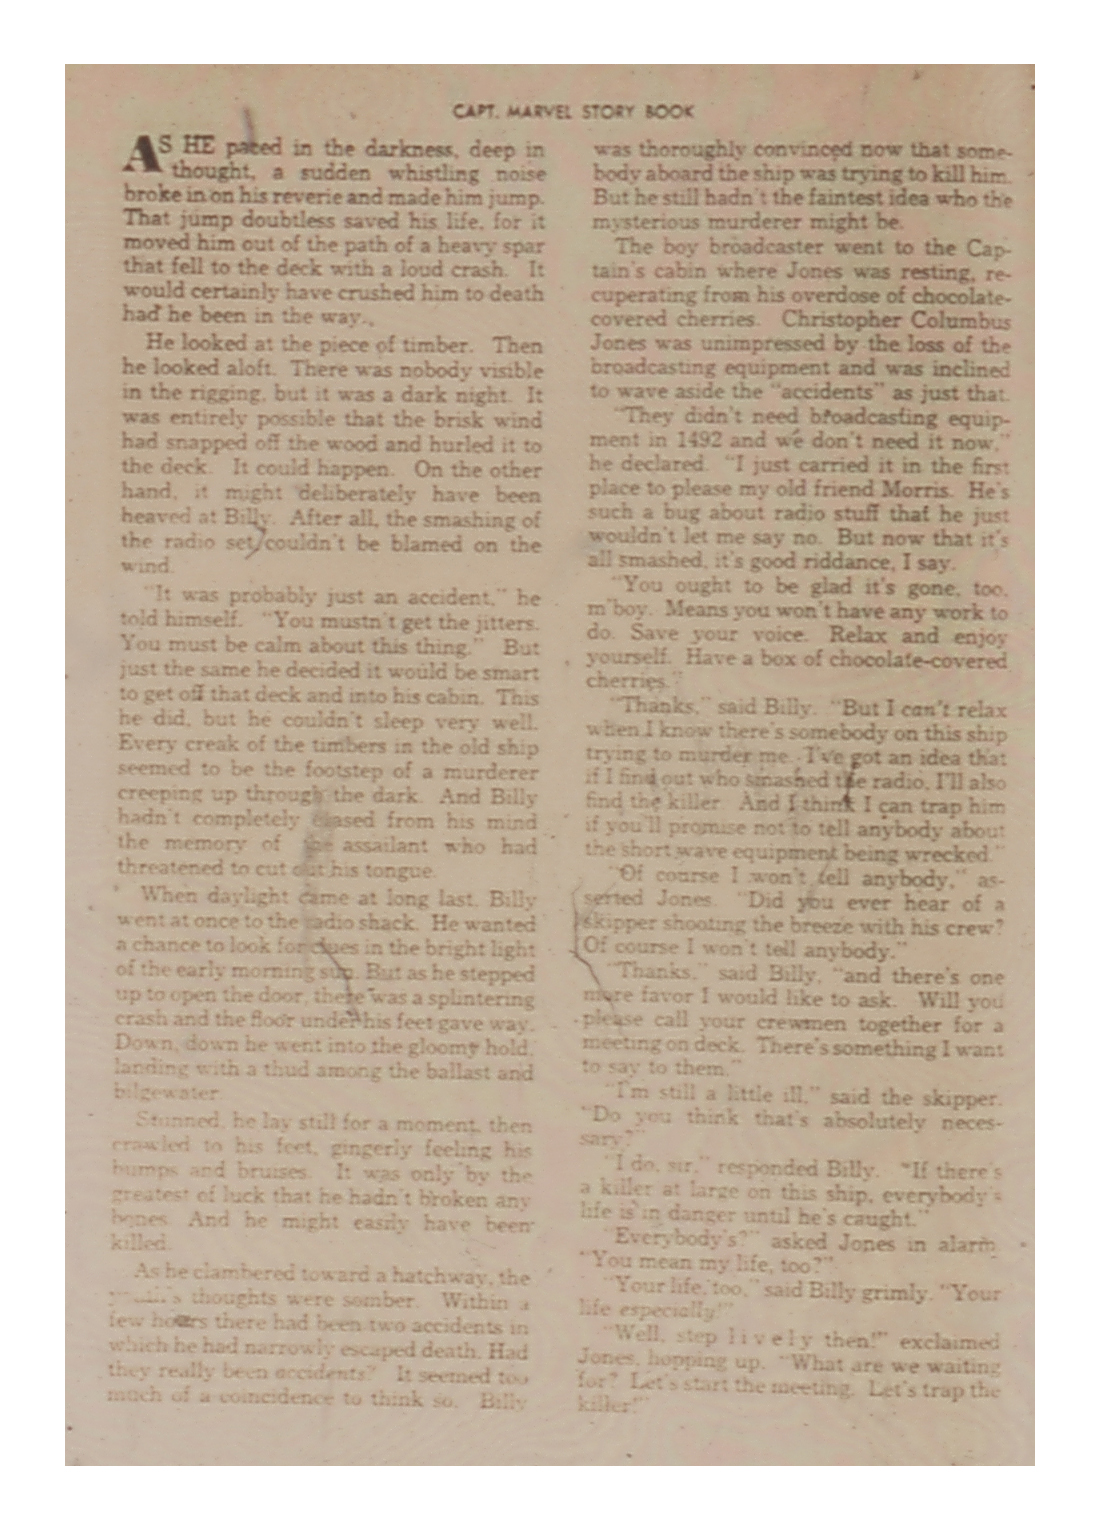 CAPT. MARVEL STORY BOOK
AS HE paced in the darkness, deep in
thought, a sudden whistling noise
broke in on his reverie and made him jump.
That jump doubtless saved his life, for it
moved him out of the path of a heavy spar
that fell to the deck with a loud crash. It
would certainly have crushed him to death
had he been in the way.
He looked at the piece of timber. Then
he looked aloft. There was nobody visible
in the rigging, but it was a dark night. It
was entirely possible that the brisk wind
had snapped off the wood and hurled it to
the deck. It could happen. On the other
hand, it might deliberately have been
heaved at Billy. After all, the smashing of
the radio set couldn't be blamed on the
wind.
"It was probably just an accident," he
told himself. "You mustn't get the jitters.
You must be calm about this thing." But
just the same he decided it would be smart
to get off that deck and into his cabin. This
he did, but he couldn't sleep very well.
Every creak of the timbers in the old ship
seemed to be the footstep of a murderer
creeping up through the dark. And Billy
hadn't completely erased from his mind
the memory of the assailant who had
threatened to cut out his tongue.
When daylight came at long last, Billy
went at once to the radio shack. He wanted
a chance to look for clues in the bright light
of the early morning sun. But as he stepped
up to open the door, there was a splintering
crash and the floor under his feet gave way.
Down, down he went into the gloomy hold,
landing with a thud among the ballast and
bilgewater.
Stunned, he lay still for a moment, then
crawled to his feet, gingerly feeling his
bumps and bruises. It was only by the
greatest of luck that he hadn't broken any
bones. And he might easily have been
killed.
As he clambered toward a hatchway, the
thoughts were somber. Within a
few hours there had been two accidents in
which he had narrowly escaped death. Had
they really been accidents? It seemed too
much of a coincidence to think so. Billy
was thoroughly convinced now that some-
body aboard the ship was trying to kill him.
But he still hadn't the faintest idea who the
mysterious murderer might be.
The boy broadcaster went to the Cap-
tain's cabin where Jones was resting, re-
cuperating from his overdose of chocolate-
covered cherries. Christopher Columbus
Jones was unimpressed by the loss of the
broadcasting equipment and was inclined
to wave aside the "accidents" as just that.
"They didn't need broadcasting equip-
ment in 1492 and we don't need it now,"
he declared. "I just carried it in the first
place to please my old friend Morris. He's
such a bug about radio stuff that he just
wouldn't let me say no. But now that it's
all smashed, it's good riddance, I say.
"You ought to be glad it's gone, too,
m'boy. Means you won't have any work to
do. Save your voice. Relax and enjoy
yourself. Have a box of chocolate-covered
cherries."
"Thanks," said Billy. "But I can't relax
when I know there's somebody on this ship
trying to murder me. I've got an idea that
if I find out who smashed the radio, I'll also
find the killer. And I think I can trap him
if you'll promise not to tell anybody about
the short wave equipment being wrecked."
"Of course I won't tell anybody," as-
serted Jones. "Did you ever hear of a
skipper shooting the breeze with his crew?
Of course I won't tell anybody."
"Thanks," said Billy, "and there's one
more favor I would like to ask. Will you
please call your crewmen together for a
meeting on deck. There's something I want
to say to them."
"I'm still a little ill," said the skipper.
"Do you think that's absolutely neces-
sary?"
"I do, sir," responded Billy. "If there's
a killer at large on this ship, everybody's
life is in danger until he's caught."
"Everybody's?" asked Jones in alarm.
"You mean my life, too?"
"Your life, too," said Billy grimly. "Your
life especially!"
"Well, step lively then!" exclaimed
Jones, hopping up. "What are we waiting
for? Let's start the meeting. Let's trap the
killer!"